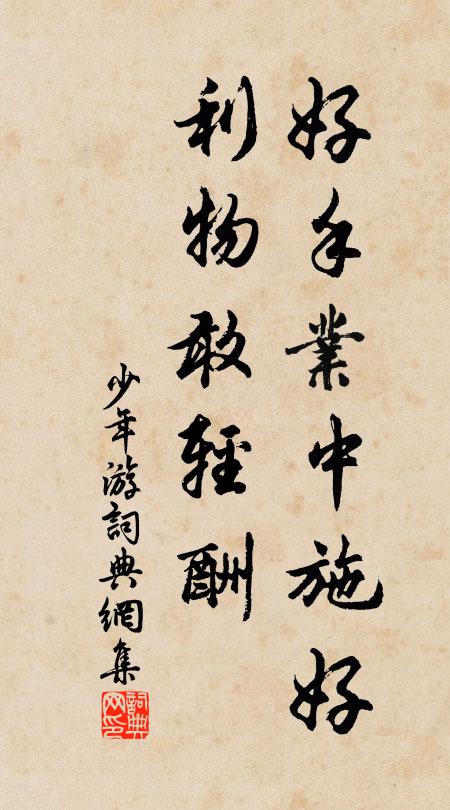 好手業中施好
利物敢輕酬
少年游詞典網集
詞典網印